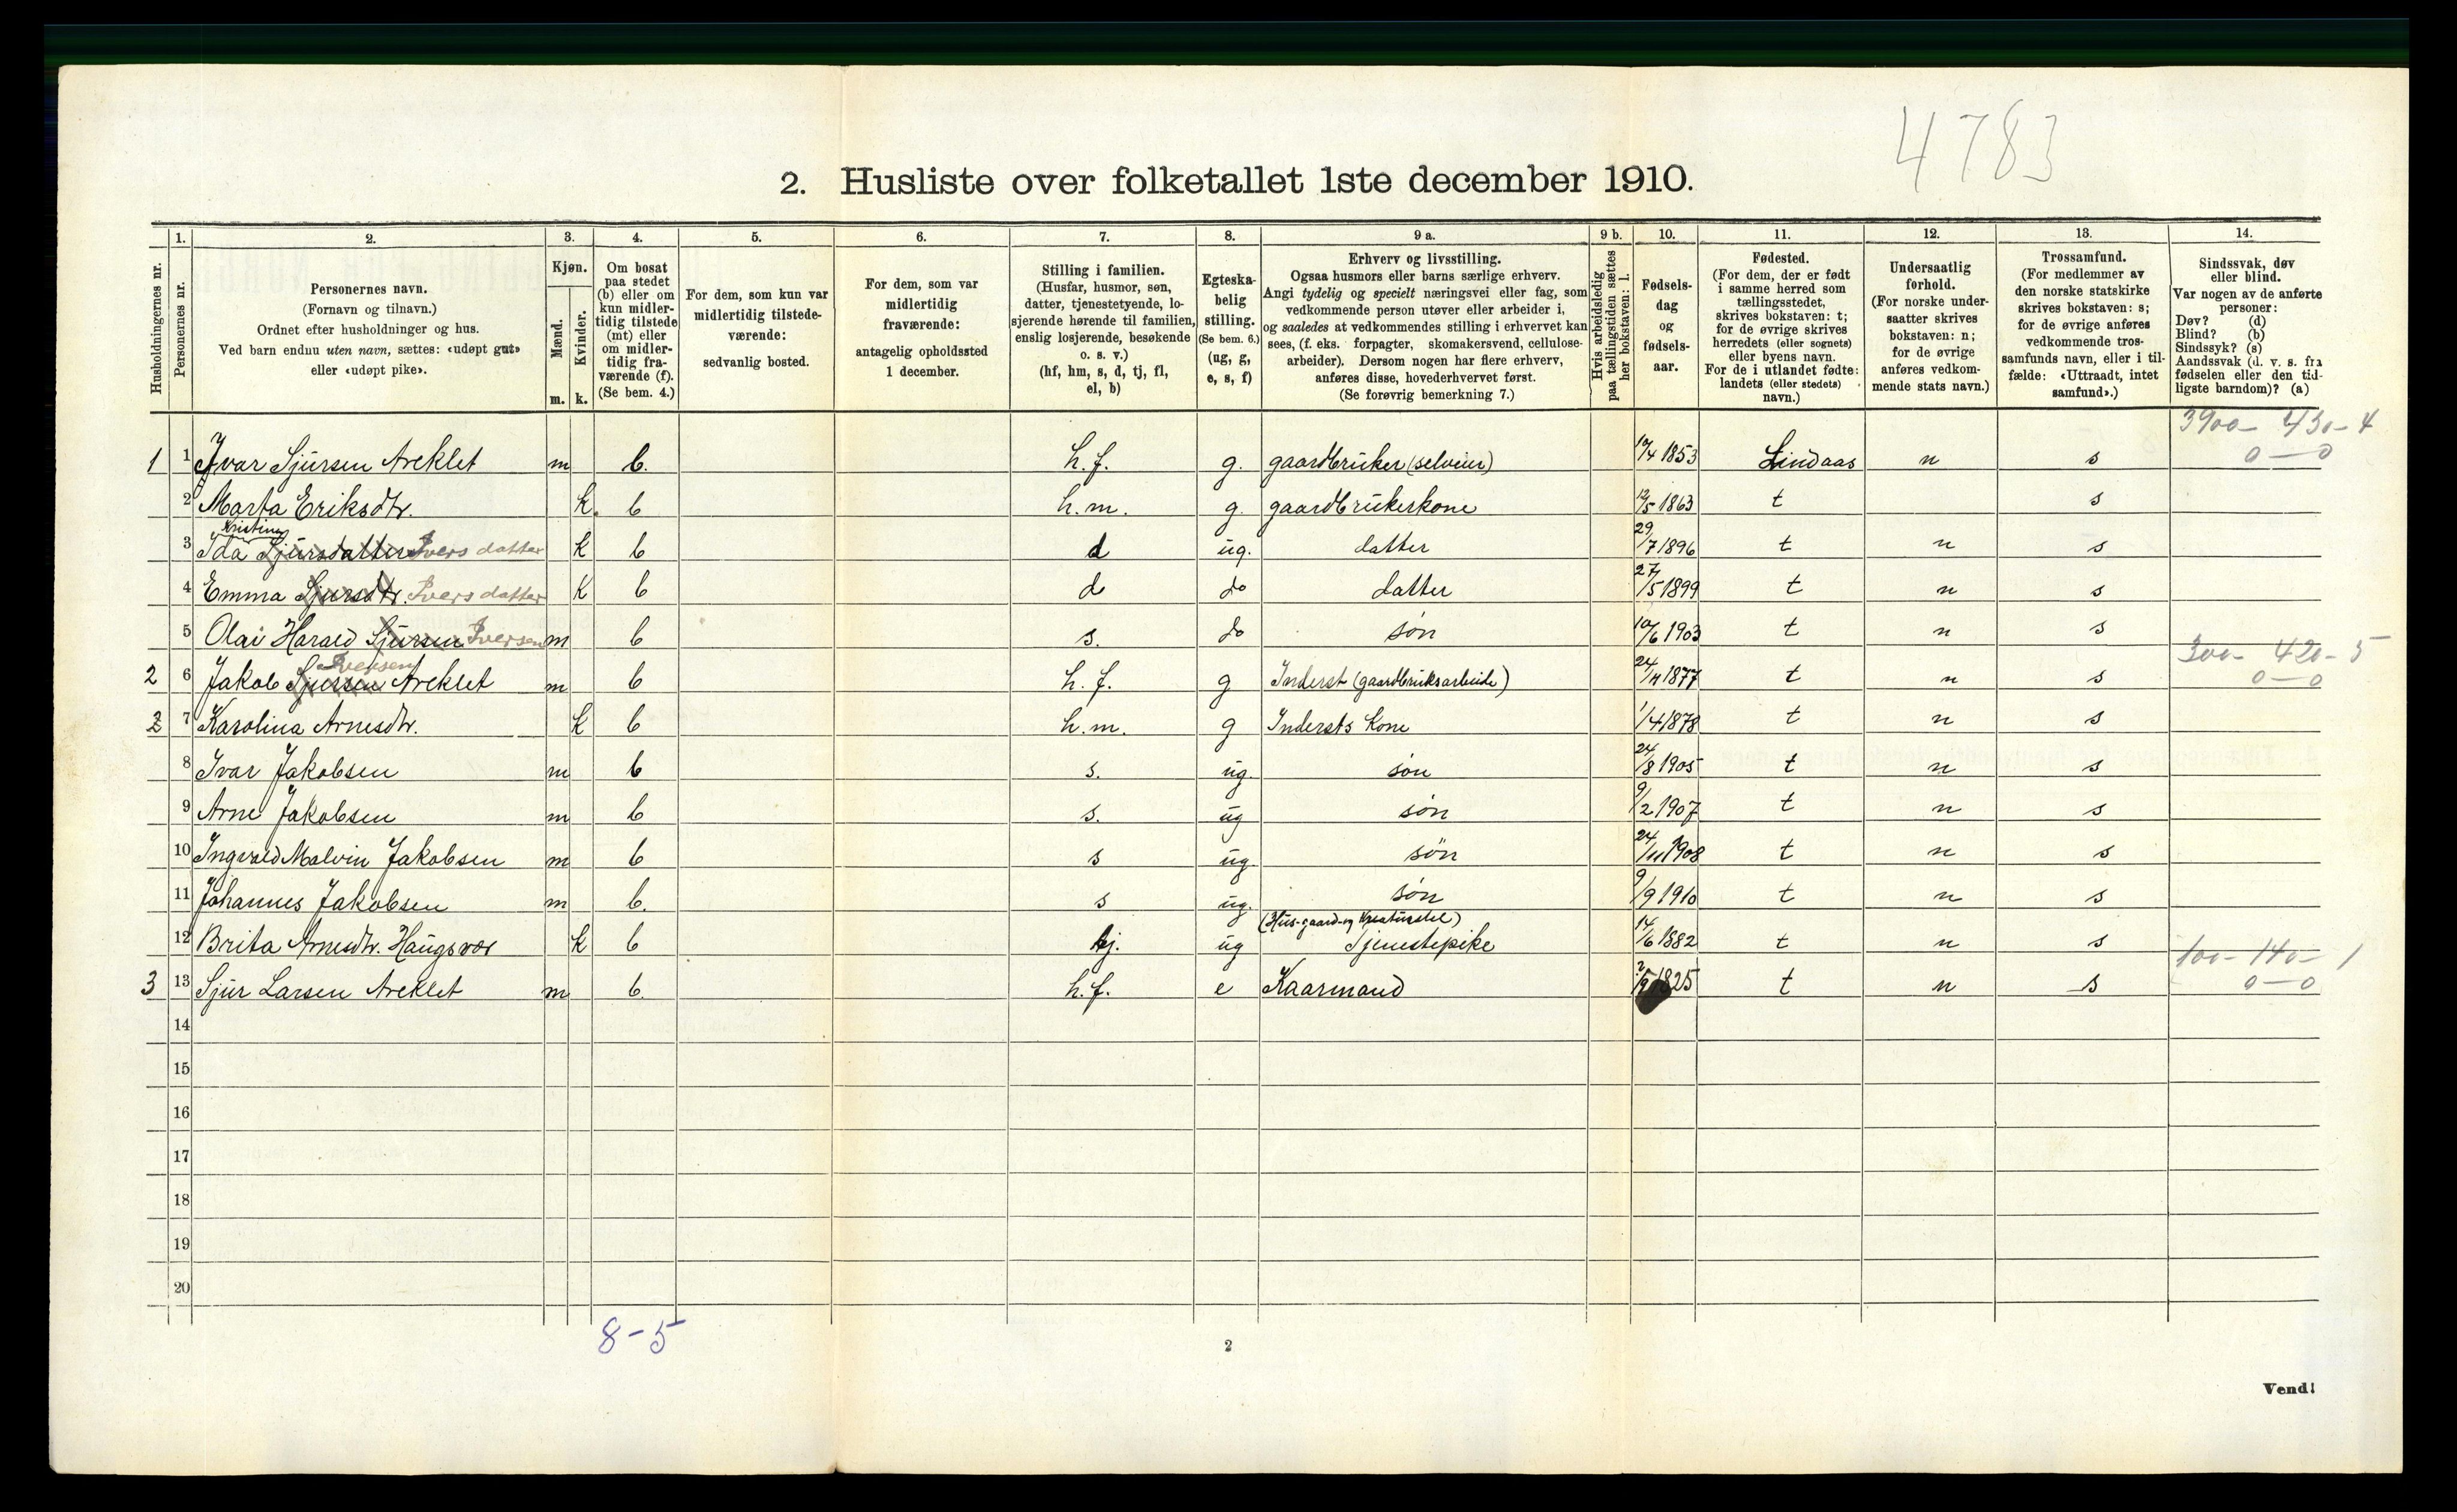 4783
2. Husliste over folketallet 1ste december 1910.
Husholdningernes nr.
1. Personernes nr.
2. Personernes navn.
(Fornavn og tilnavn.)
Ordnet efter husholdninger og hus.
Ved barn endnu uten navn, sættes: «udøpt gut»
eller «udøpt pike».
3. Kjøn.
Mænd. m.
Kvinder. k.
4. Om bosat
paa stedet
(b) eller om
kun midler-
tidig tilstede
(mt) eller
om midler-
tidig fra-
værende (f).
(Se bem. 4.)
5. For dem, som kun var
midlertidig tilstede-
værende:
sedvanlig bosted.
6. For dem, som var
midlertidig
fraværende:
antagelig opholdssted
1 december.
7. Stilling i familien.
(Husfar, husmor, søn,
datter, tjenestetyende, lo-
sjerende hørende til familien,
enslig losjerende, besøkende
o. s. v.)
(hf, hm, s, d, tj, fl,
el, b)
8. Egteska-
belig
stilling.
(Se bem. 6.)
(ug, g,
e, s, f)
9 a. Erhverv og livsstilling.
Ogsaa husmors eller barns særlige erhverv.
Angi tydelig og specielt næringsvei eller fag, som
vedkommende person utøver eller arbeider i,
og saaledes at vedkommendes stilling i erhvervet kan
sees, (f. eks. forpagter, skomakersvend, cellulose-
arbeider). Dersom nogen har flere erhverv,
anføres disse, hovederhvervet først.
(Se forøvrig bemerkning 7.)
9 b. Hvis arbeidsledig
paa tællingstiden sættes
her bokstaven: l.
10. Fødsels-
dag
og
fødsels-
aar.
11. Fødested.
(For dem, der er født
i samme herred som
tællingsstedet,
skrives bokstaven: t;
for de øvrige skrives
herredets (eller sognets)
eller byens navn.
For de i utlandet fødte:
landets (eller stedets)
navn.)
12. Undersaatlig
forhold.
(For norske under-
saatter skrives
bokstaven: n;
for de øvrige
anføres vedkom-
mende stats navn.)
13. Trossamfund.
(For medlemmer av
den norske statskirke
skrives bokstaven: s;
for de øvrige anføres
vedkommende tros-
samfunds navn, eller i til-
fælde: «Uttraadt, intet
samfund».)
14. Sindssvak, døv
eller blind.
Var nogen av de anførte
personer:
Døv? (d)
Blind? (b)
Sindssyk? (s)
Aandssvak (d. v. s. fra
fødselen eller den tid-
ligste barndom)? (a)
3900- 430-4
1 1 Ivar Sjursen Areklet m b. h.f. g. gaardbruker (selveier) 10/4 1853 Lindaas n s 0-0
2 Marta Eriksdtr. k. b h.m. g. gaardbrukerkone 12/5 1863 t s
Kristine
3 Ida Sjursdatter Ivers datter k b d ug. datter 29/7 1896 t n s
4 Emma Sjursdtr. Ivers datter k b d do datter 27/5 1899 t n s
5 Olai Harald Sjursen Iversen m b s. do søn 10/6 1903 t n s
Iversen 300- 420-5
2 6 Jakob Sjursen Areklet m b h.f. g Inderst (gaardbruksarbeide) 24/11 1877 t n s 0-0
2 7 Karolina Arnesdtr. k b h.m. g Indersts kone 1/4 1878 t n s
8 Ivar Jakobsen m b s. ug. søn 24/8 1905 t n s
9 Arne Jakobsen m b s. ug søn 9/2 1907 t n s
10 Ingvald Malvin Jakobsen m b s ug. søn 24/11 1908 t n s
11 Johannes Jakobsen m b. s ug. søn 9/9 1910 t n s
(Hus-gaard-og Kreaturstel)
12 Brita Arnesdtr. Haugsvær k b tj. ug Tjenestepike 14/6 1882 t n s
100- 140- 1
3 13 Sjur Larsen Areklet m b. h.f. e Kaarmand 1825 t n s 0-0
14
15
16
17
18
19
20
8-5
2
Vend!